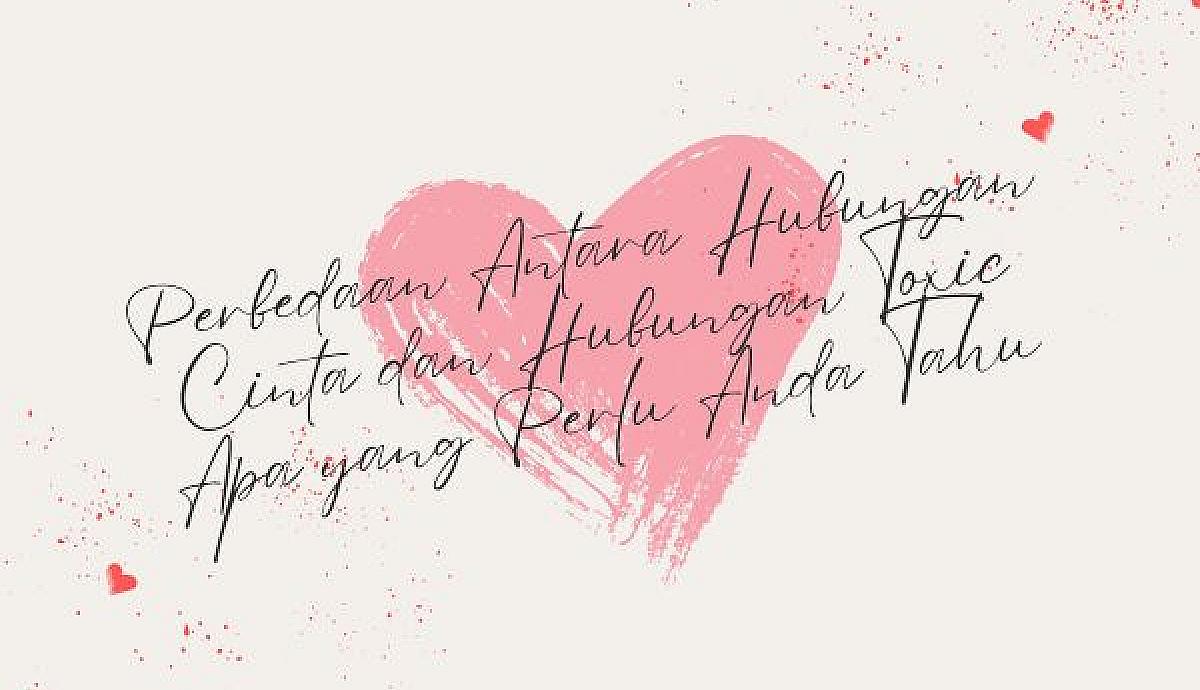 Perbedaan Antara Hubungan
Cinta dan Hubungan Toxic
Apa yang Perlu Anda Tahu